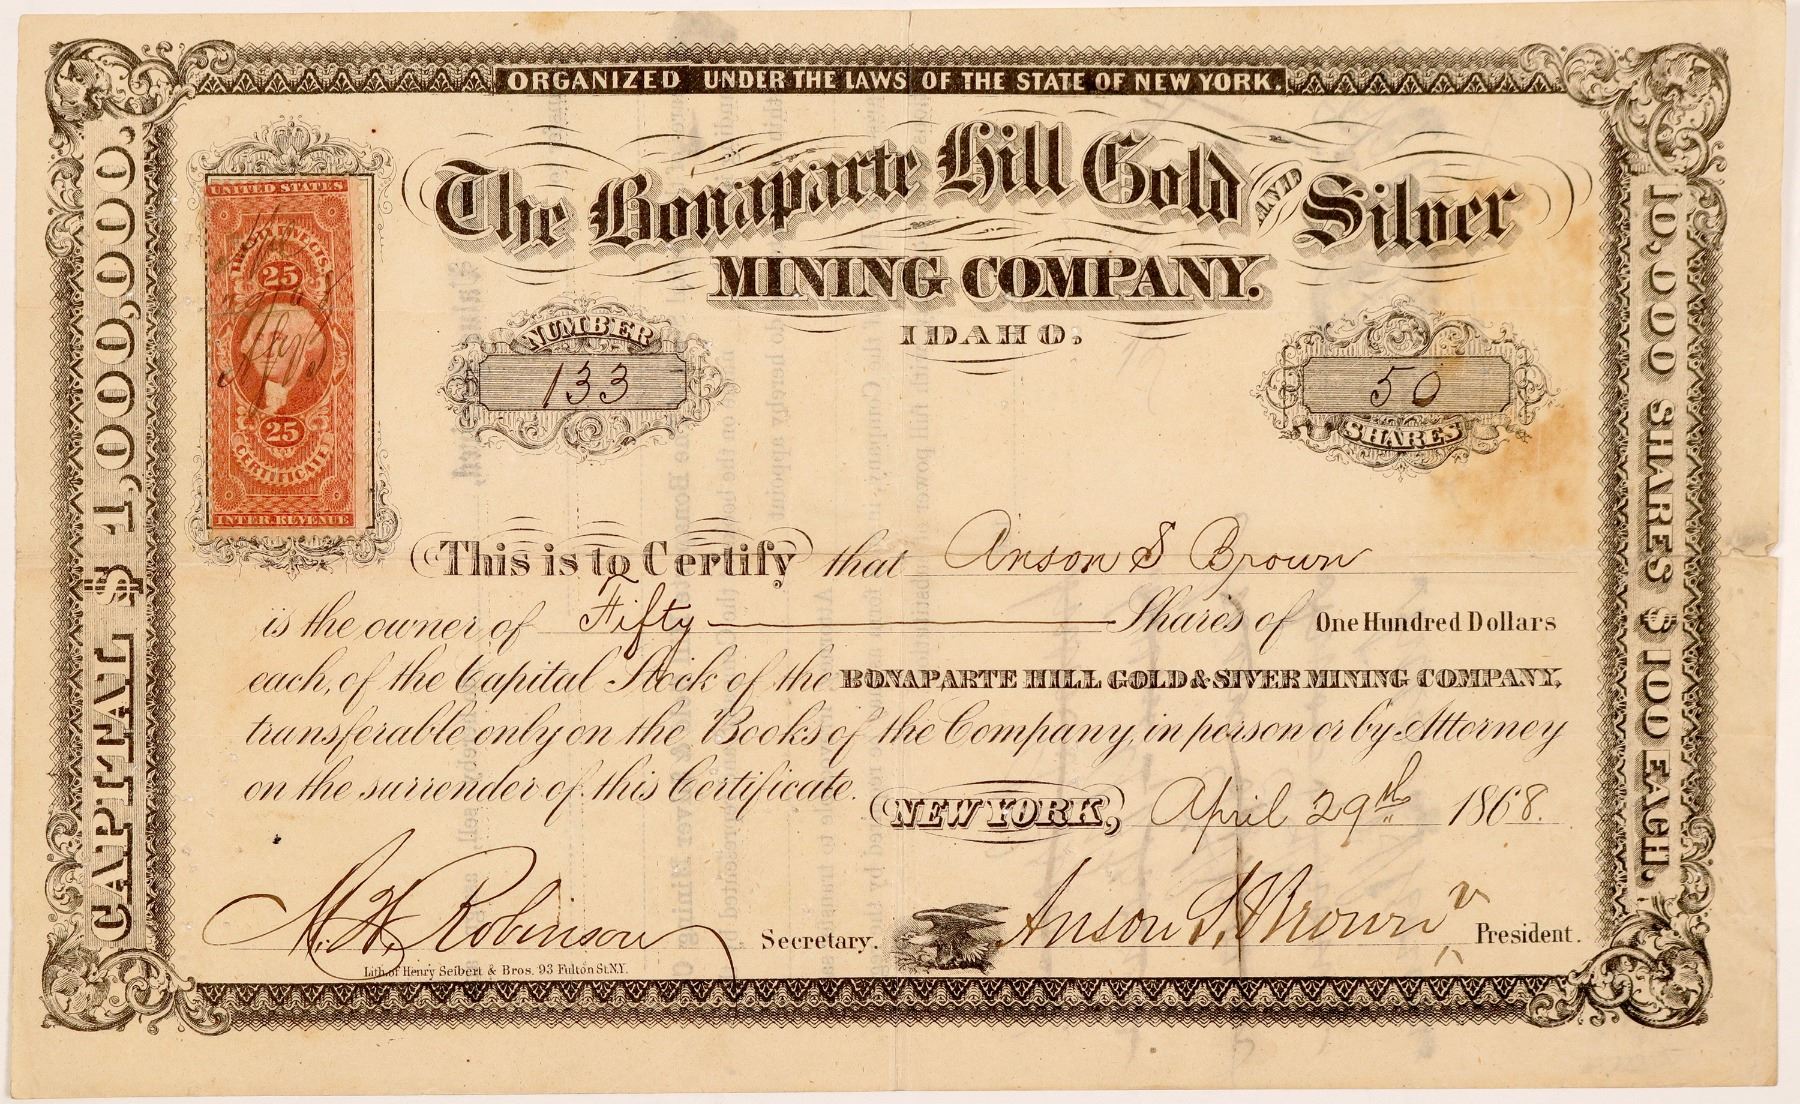 ORGANIZED UNDER THE LAWS OF THE STATE OF NEW YORK.
CAPITAL $ 1,000,000.
10,000 SHARES $ 100 EACH.
UNITED STATES
25
25
CERTIFICATE
INTER. REVENUE
The Bonaparte Hill Gold AND Silver
MINING COMPANY.
IDAHO.
NUMBER
133
50
SHARES
This is to Certify that Anson S Brown
is the owner of Fifty Shares of One Hundred Dollars
each, of the Capital Stock of the BONAPARTE HILL GOLD & SIVER MINING COMPANY,
transferable only on the Books of the Company, in person or by Attorney
on the surrender of this Certificate.
NEW YORK, April 29th 1868.
M. H. Robinson Secretary.
Anson S. Brown President.
Lith. of Henry Seibert & Bros. 93 Fulton St. N.Y.